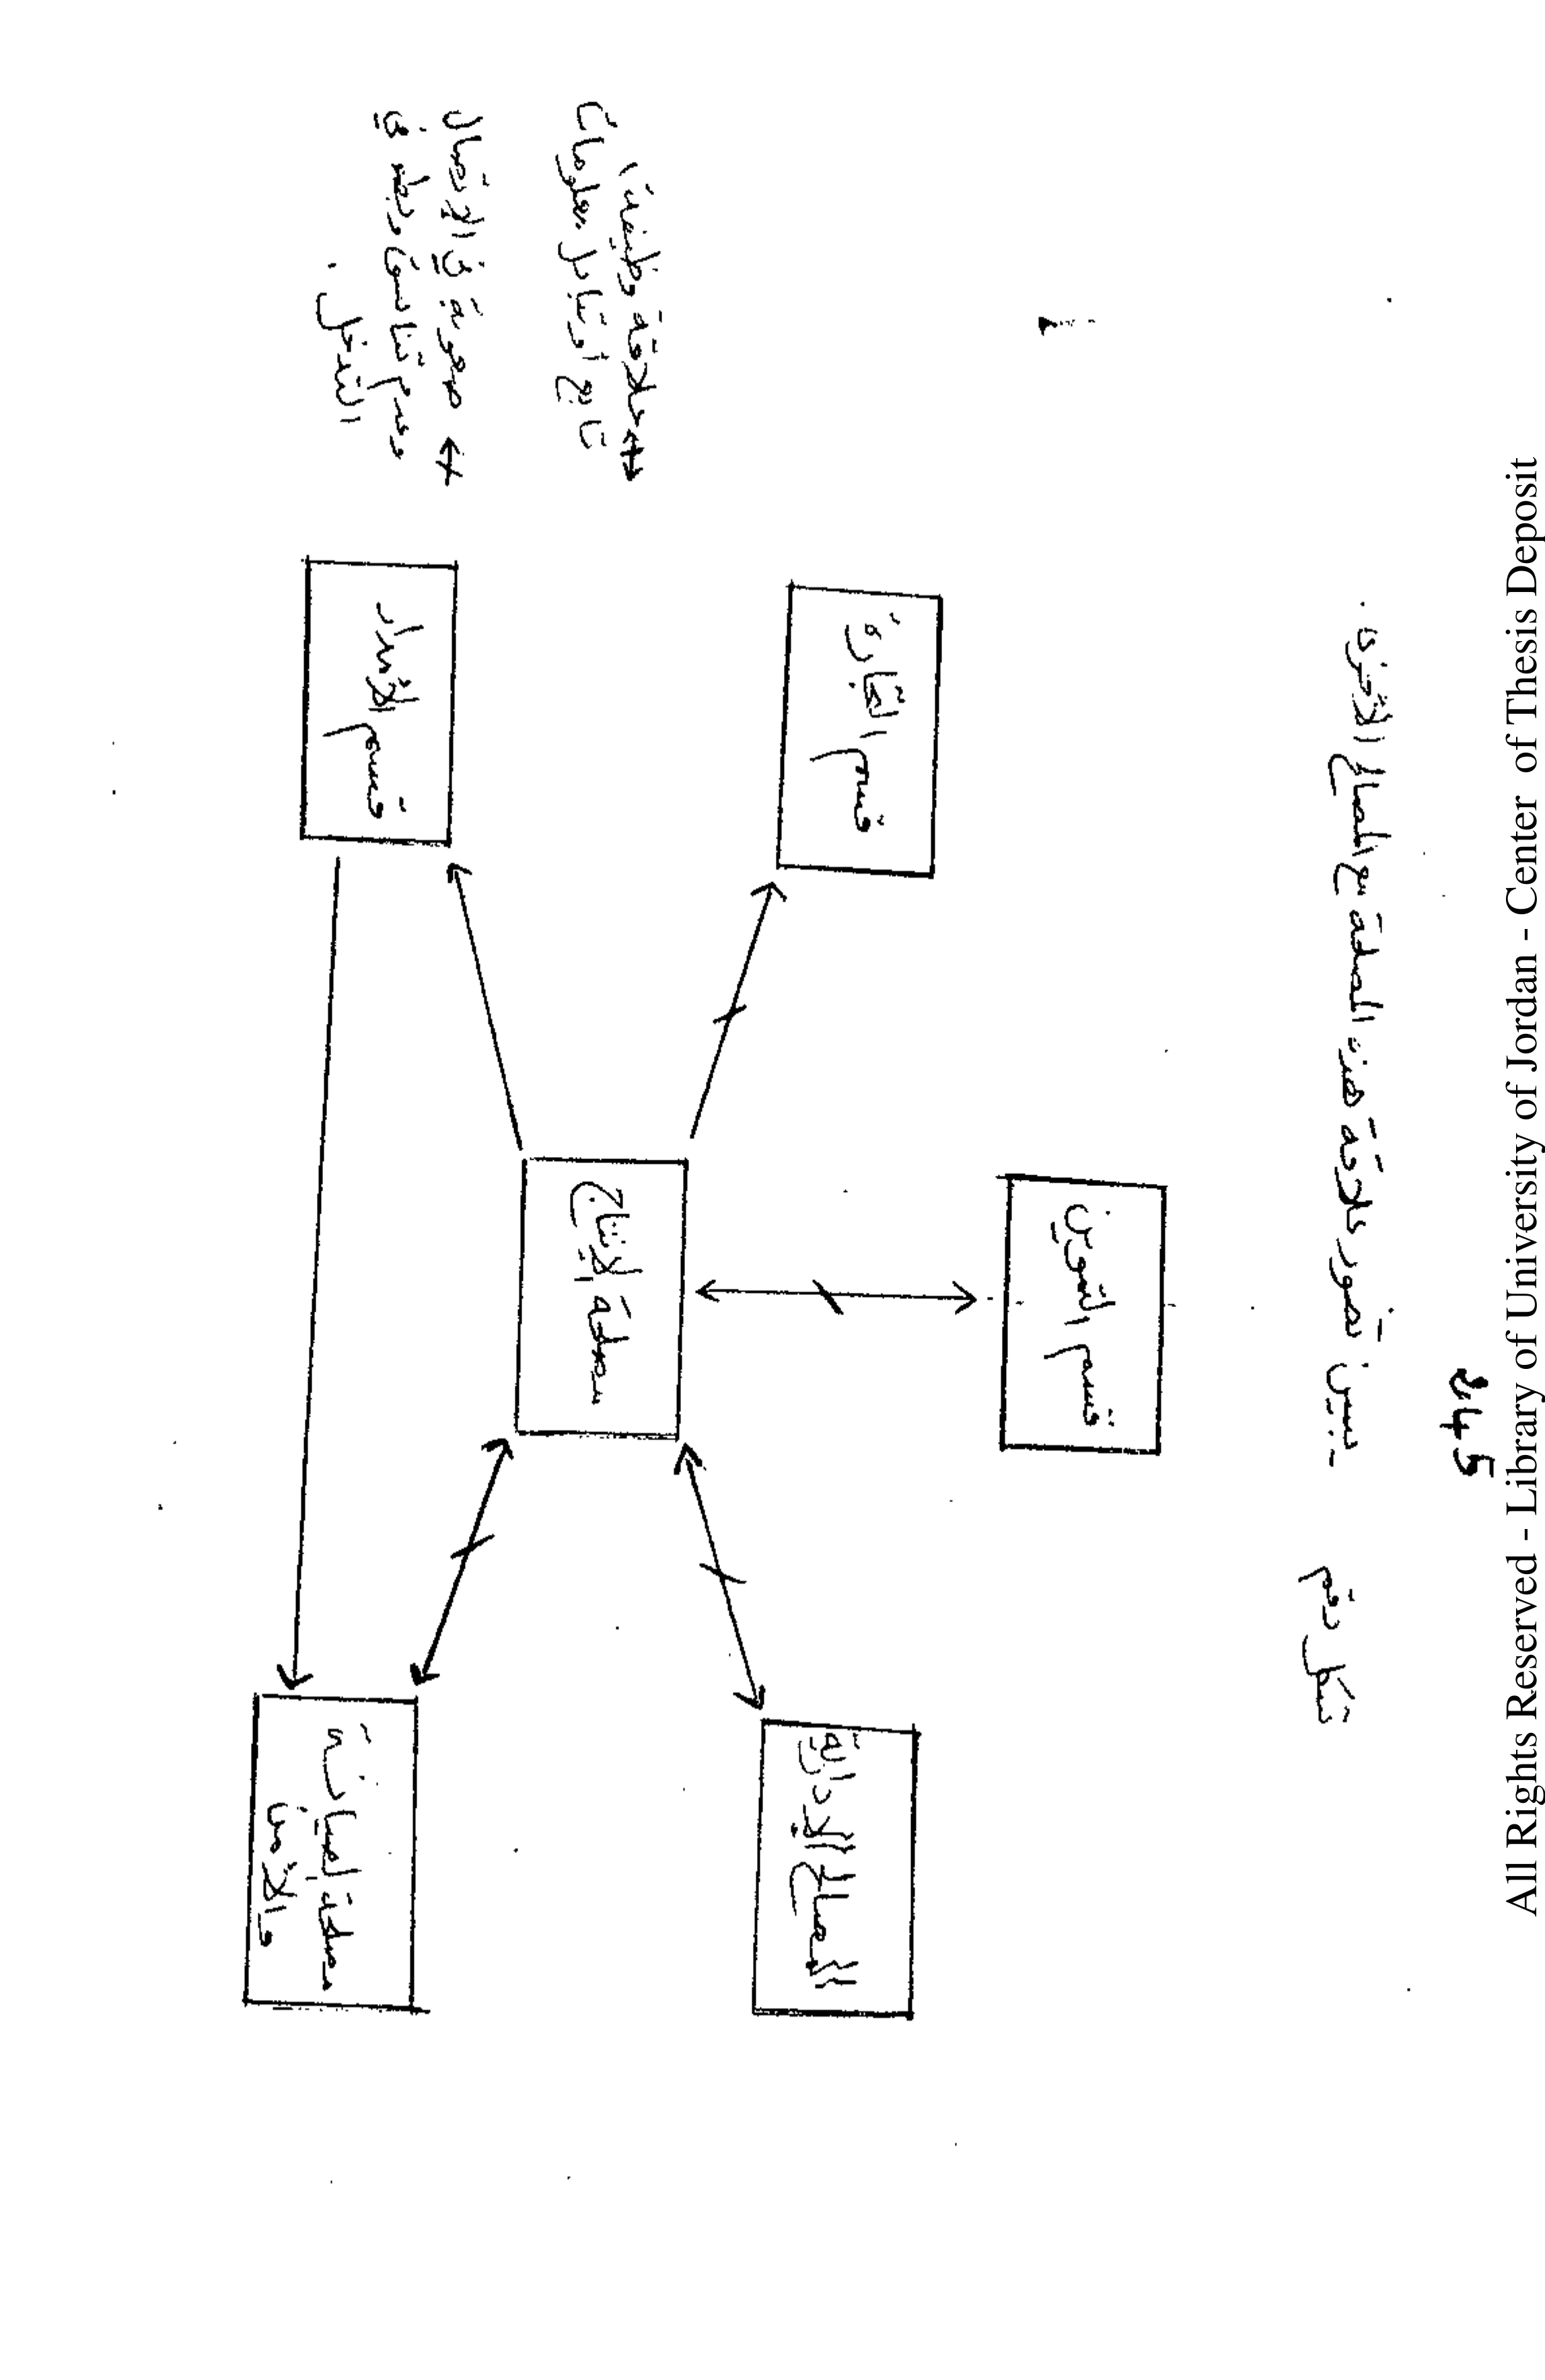 245
شكل رقم يبين تصور علاقة هذه المصلحة مع المصالح الأخرى.
قسم التموين
المصالح الإدارية
قسم التجارة
مصلحة الإنتاج
مصلحة الصيانة
والأمن
قسم الأفراد
علاقة وظيفية،
تابع او تبادل معلومات
صعوبة في الإتصال
وعدم تناسق وبطء في
التدخل.
All Rights Reserved - Library of University of Jordan - Center of Thesis Deposit